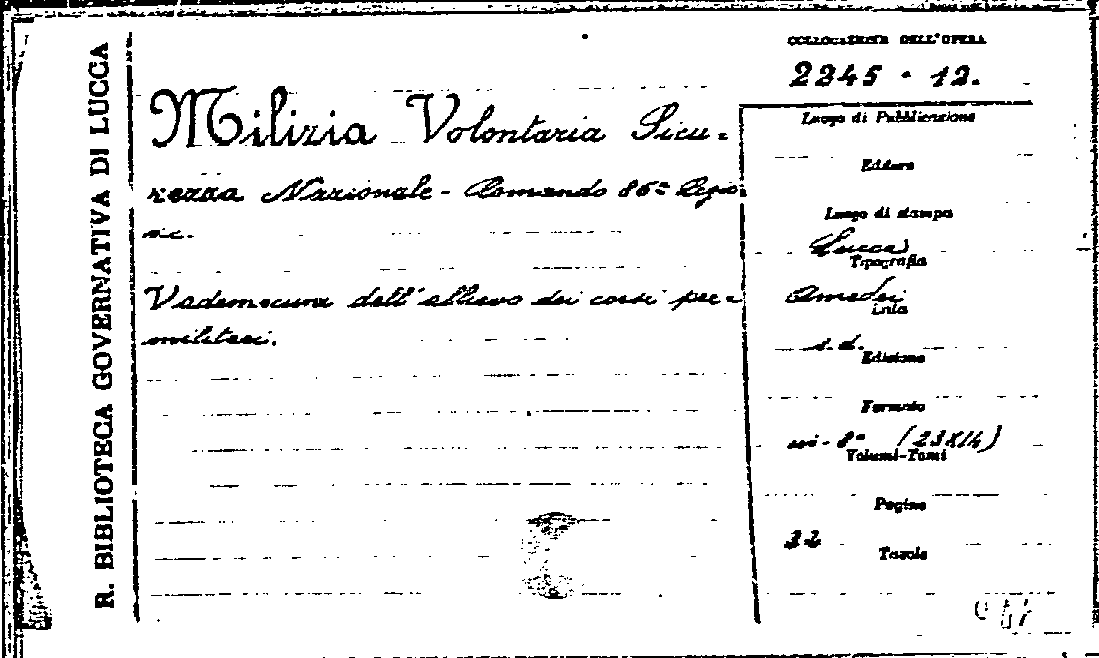 R. BIBLIOTECA GOVERNATIVA DI LUCCA
COLLOCAZIONE DELL'OPERA
2245 - 12.
Milizia Volontaria Sicu-
rezza Nazionale - Comando 86ª Legio-
ne.
Vademecum dell'allievo dei corsi pre-
militari.
Luogo di Pubblicazione
Editore
Luogo di stampa
Lucca
Tipografia
Amedei
Data
s. d.
Edizione
Formato
in-8º (23x14)
Volumi-Tomi
Pagine
32
Tavole